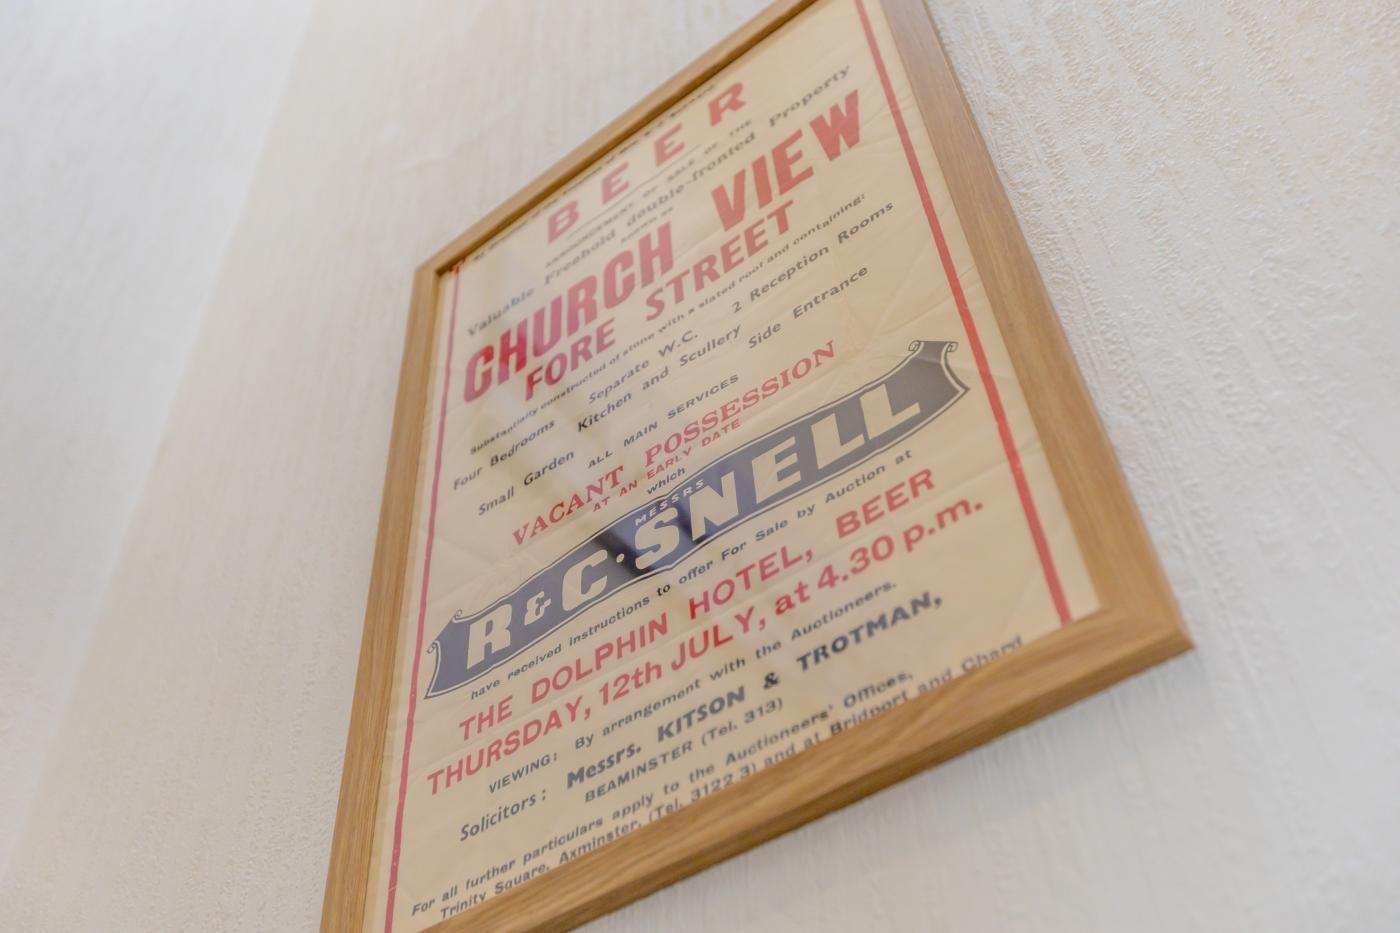 BEER
ANNOUNCEMENT OF SALE OF THE
Valuable Freehold double-fronted Property
known as
CHURCH VIEW
FORE STREET
Substantially constructed of stone with a slated roof and containing:
Four Bedrooms Separate W.C. 2 Reception Rooms
Small Garden Kitchen and Scullery Side Entrance
ALL MAIN SERVICES
VACANT POSSESSION
AT AN EARLY DATE
which
MESSRS
R & C · SNELL
have received instructions to offer For Sale by Auction at
THE DOLPHIN HOTEL, BEER
THURSDAY, 12th JULY, at 4.30 p.m.
VIEWING: By arrangement with the Auctioneers.
Solicitors: Messrs. KITSON & TROTMAN,
BEAMINSTER (Tel. 313)
For all further particulars apply to the Auctioneers' Offices,
Trinity Square, Axminster, (Tel. 3122 3) and at Bridport and Chard